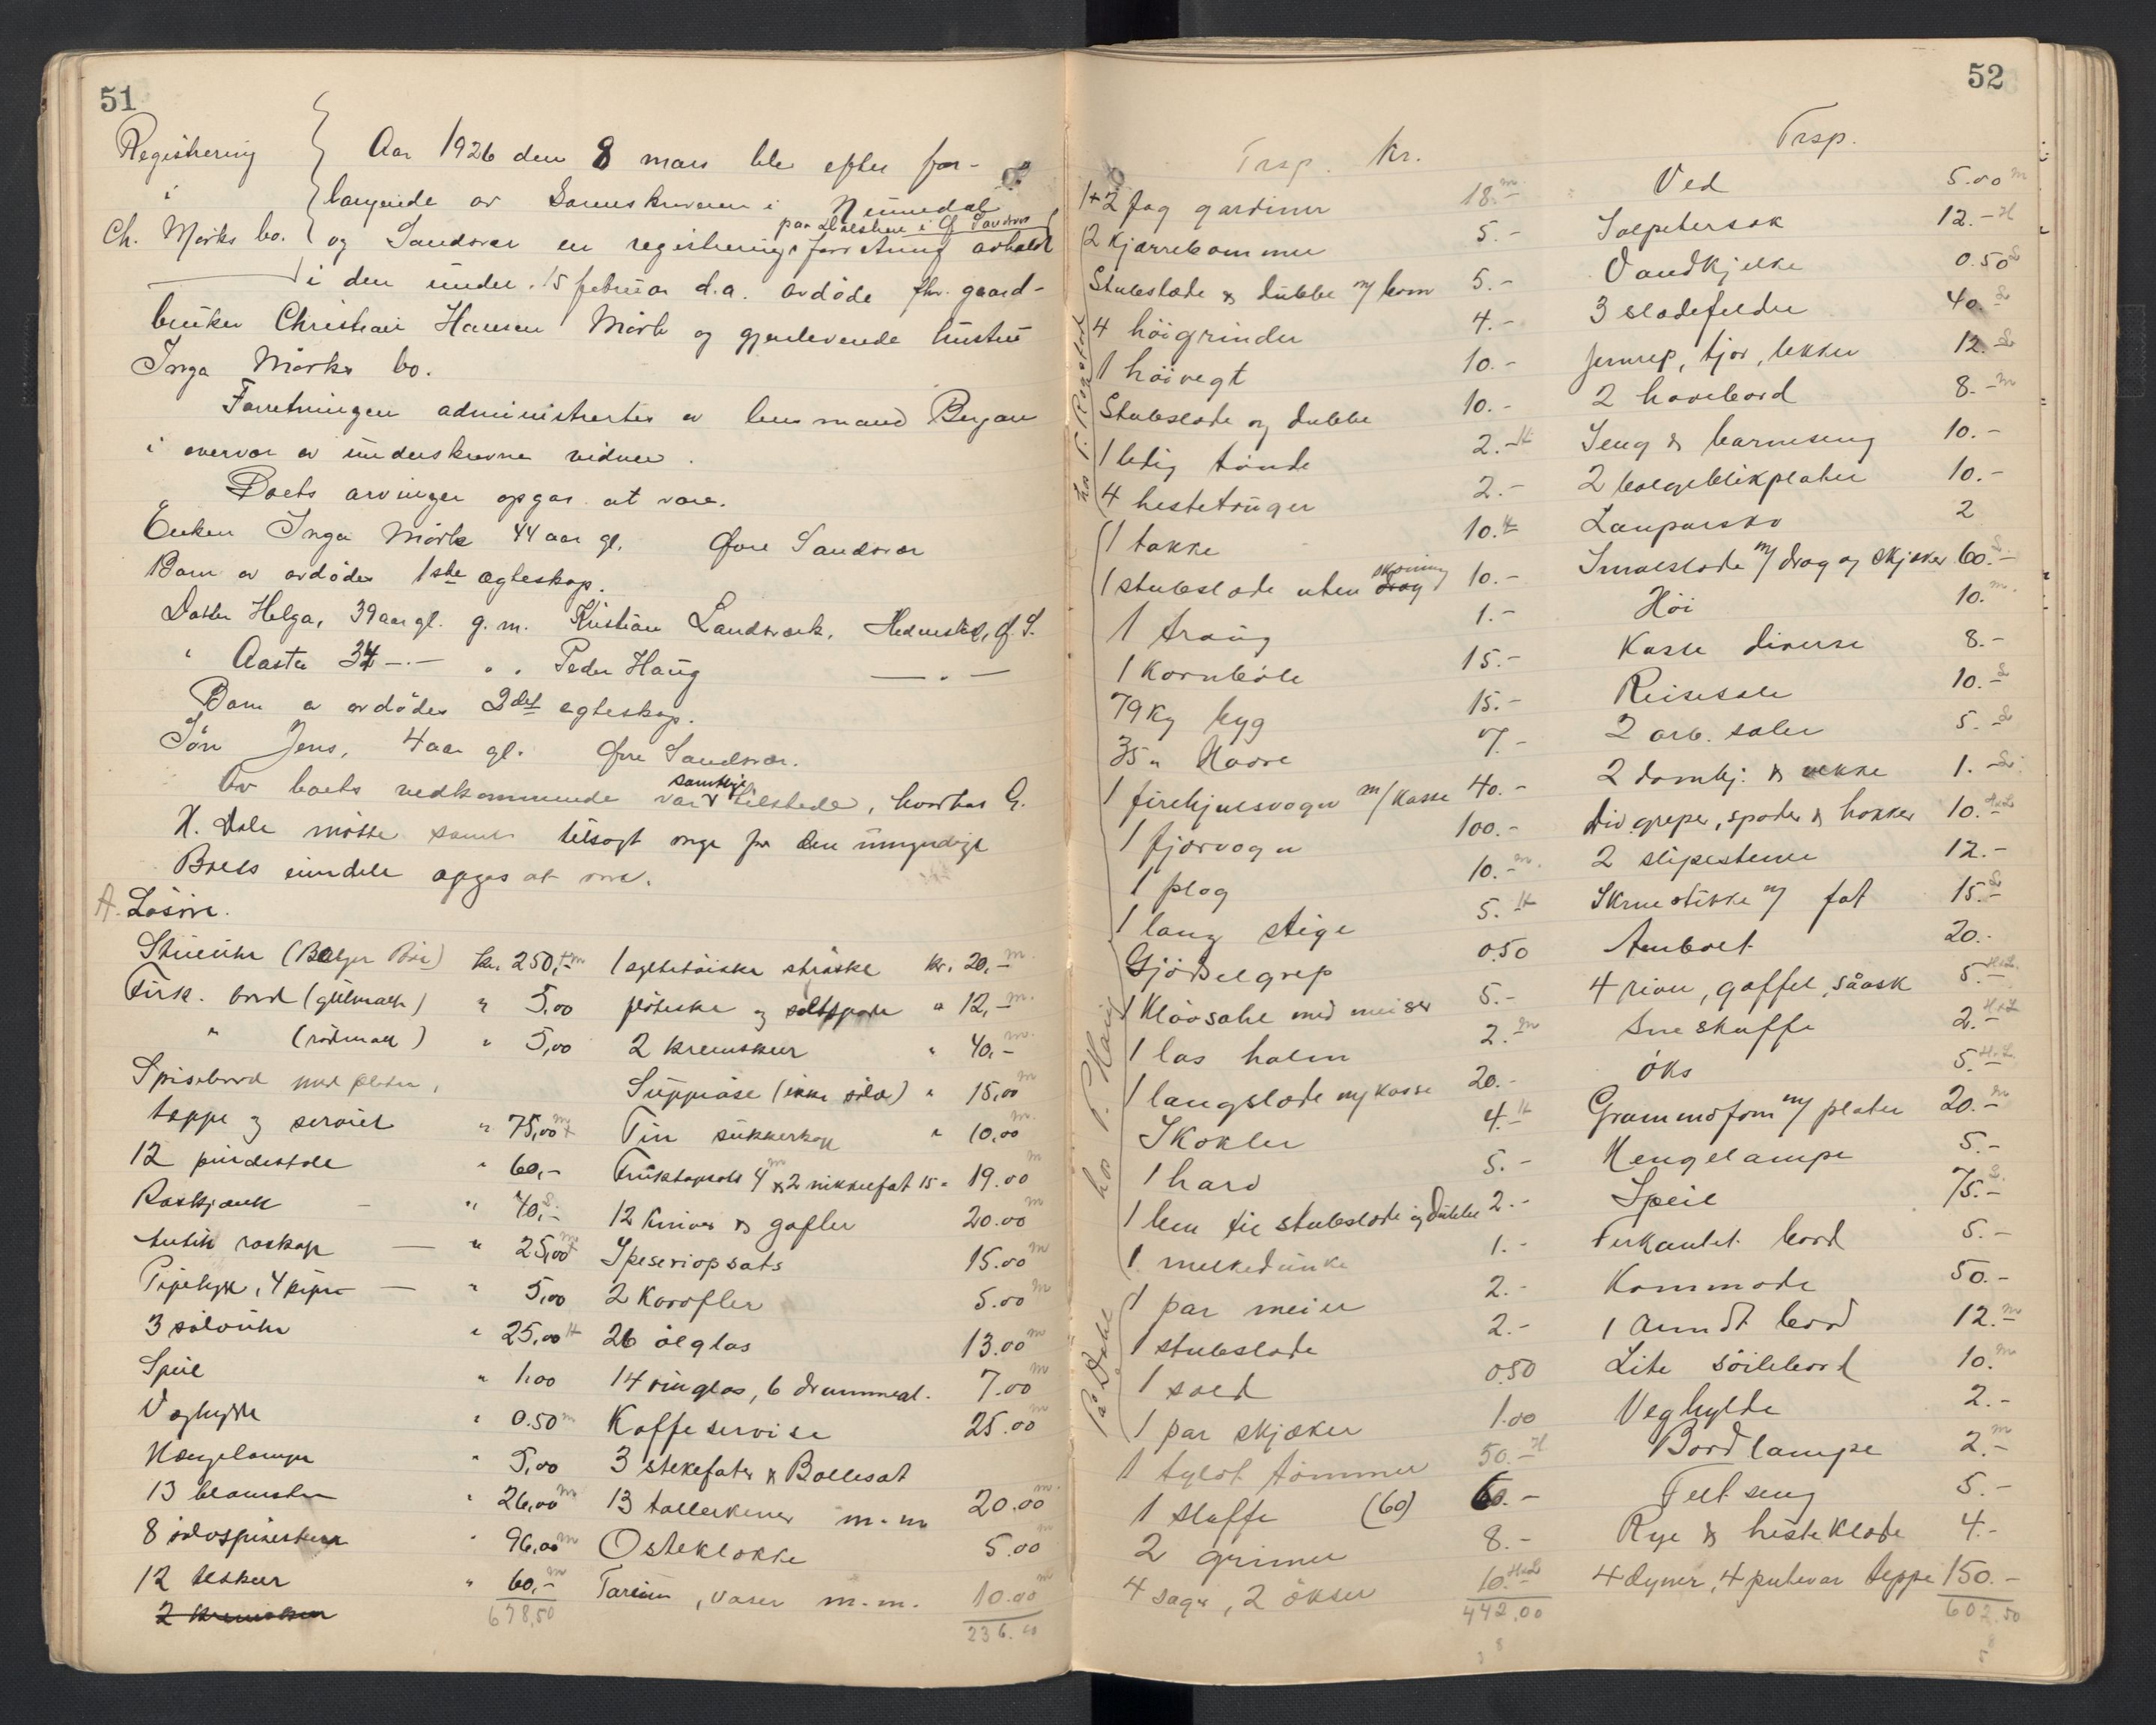 51
Registrering
i
Ch. Mörks bo.
Aar 1926 den 8 mars ble efter for-
langende av Sorenskriveren i Numedal
paa Dalsbu i Ö Sandsvær
og Sandsvær en registreringsforretning avholdt
i den under 15 februar d.a. avdöde fhv. gaard-
bruker Christian Hansen Mörk og gjenlevende hustru
Inga Mörks bo.
Forretningen administrertes av lensmand Bergan
i overvær av underskrevne vidner.
Boets arvinger opgas at være.
Enken Inga Mörk 44 aar gl. Övre Sandsvær
Barn av avdödes 1ste egteskap.
Datter Helga, 39 aar gl. g.m. Kristian Landsverk, Hedenstad, Ö. S.
" Aasta 34 -.- " . Peder Haug -.-
Barn av avdödes 2det egteskap.
Sön Jens, 4 aar gl. Övre Sandsvær.
Av boets vedkommende var samtlige tilstede, hvorhos G.
H. Dale mötte som tilsagt verge for den umyndige
Boets eiendele opgas at være.
A. Lösöre.
Stueuhr kr. 250,- m
Firk. bord (gulmalt) " 5,00
" (rödmalt) " 5,00
Spisebord med plater,
teppe og serviet " 75,00 m
12 pindestole " 60,-
Roskjænk - " 40,- L
Antik roskap - " 25,00 m
Pipehylle, 4 piper - " 5,00
3 sölvuhr " 25,00 H
Speil " 1,00
Veghylle " 0.50 m
Hængelampe " 5,00
13 blomster " 26,00 m
8 sölvspiseskeer " 96,00 m
12 teskeer " 60,- m
2 kremskeer
678,50
1 egte töiske ströske kr. 20,- m
flöteske og saltspade " 12,- m
2 kremskeer " 40,- m
Suppeöse (ikke sölv) " 15,00 m
Tin sukkerkop " 10,00 m
Fruktopsats 4 & 2 nikkelfat 15 " 19.00 m
12 kniver & gafler 20.00 m
Speseriopsats 15.00 m
2 Karafler 5.00 m
26 ölglas 13.00 m
14 vinglas, 6 drammegl. 7.00 m
Kaffeservise 25.00 m
3 stekefater & Bollesat
13 tallerkener m.m 20.00 m
Osteklokke 5.00 m
Tarin, vaser m.m. 10.00 m
236.00
52
Trsp. Kr.
1+2 fag gardiner 18.- m
2 kjærrebommer 5.-
Stubslæde & dubbe m/ bom 5.-
4 höigrinder 4.-
1 höivegt 10.-
Stubslæde og dubbe 10.-
1 ledig tönde 2.- H
4 hestetruger 2.-
1 takke 10. H
1 stubslæde uten skjæring 10.-
1 traug 1.-
1 Kornböle 15.-
79 kg byg 15.-
35 " Havre 7.-
1 firehjulsvogn m/ kasse 40.-
1 fjærvogn 100.-
1 plog 10.- m
1 lang stige 5. H
Gjödselgrep 0.50
1 Klövsale med meiser 5.-
1 las halm 2. m
1 langslæde m/ kasse 20.-
Skokler 4. H
1 harv 5.-
1 bom til stubslæde og dubbe 2.-
1 melkedunke 1.-
1 par meier 2.-
1 stubslæde 2.-
1 sold 0.50
1 par skjæker 1.00
1 tylvt tömmer 50.- H
1 sluffe (60) 60.-
2 grimer 8.-
4 sager, 2 ökser 10. H&L
442,00
hos P. Haug
På Dahl
Trsp.
Ved 5.00 m
Salpetersæk 12.- H
Vandkjelke 0.50 L
3 sladefelder 40.- L
Jernrep, tjor, lekker 12.- L
2 havebord 8.- m
Seng & barneseng 10.-
2 bølgeblikplater 10.-
Lauparsko 2
Smalslæde m/ drag og skjæker 60.- L
Höi 10. m
Kasse diverse 8.-
Reisesele 10.- L
2 arb. seler 5.- L
2 domkj. & vekke 1.- L
Div. greper, spader & hakker 10.- H&L
2 slipestener 12.-
Skruestikke m/ fat 15.- L
Ambolt 20.-
4 river, gaffel, såask 5.- H&L
Sneskuffe 2.- H&L
öks 5.- H&L
Grammofon m/ plater 20.- m
Hengelampe 5.-
Speil 75.- L
Firkantet bord 5.-
Kommode 50.-
1 rundt bord 12.- m
Lite söilebord 10. m
Veghylde 2.-
Bordlampe 2.- m
Feltseng 5.-
Rye & hesteklæde 4.-
4 dyner, 4 putevar teppe 150.-
602.50